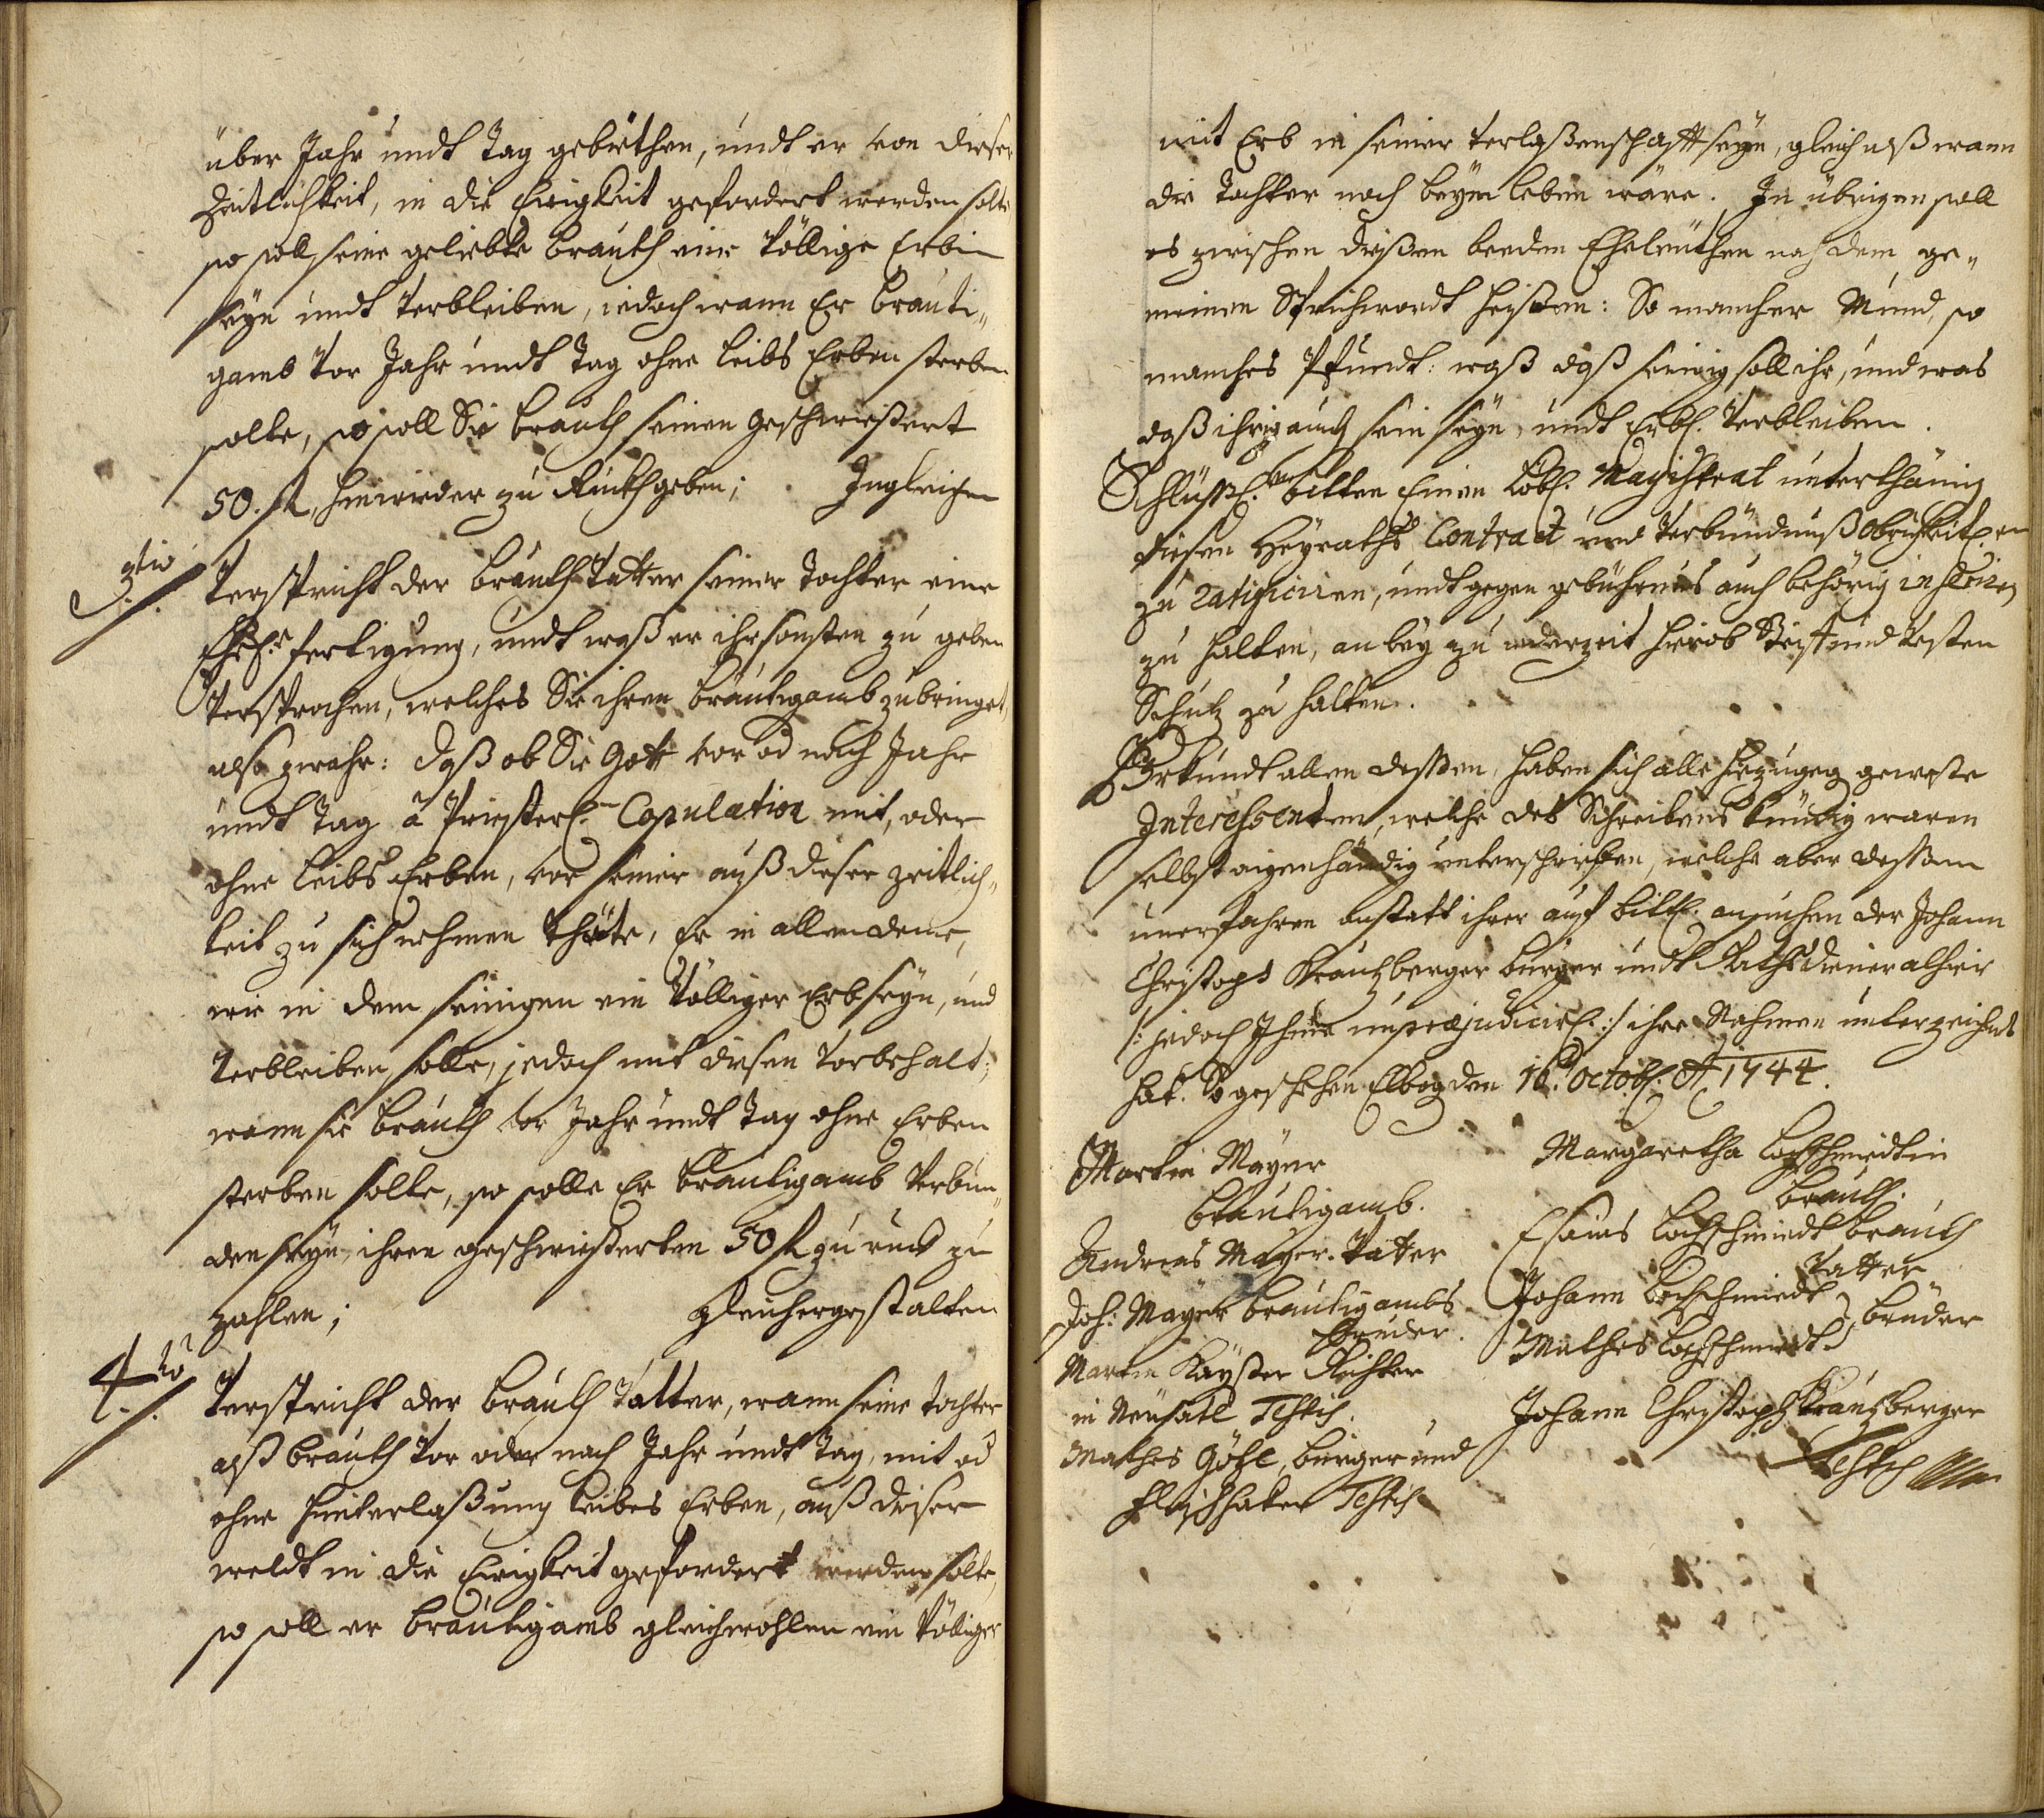 über Jahr undt Tag gebethen, undt er von dieser
Zeitlichkeit, in die Ewigkeit gefordert werden solte
so soll seine geliebte brauth eine Völlige Erbin
seyn undt Verbleiben, jedoch wann Er bräuti„
gamb Vor Jahr undt Tag ohne leibs Erben sterben
solte, so soll Sie brauth seinen geschwiestert
50. fl. hinwieder zu Ruckh geben; Ingleichen
3tio
Verspricht der brauth Vatter seiner Tochter eine
Ehrl. fertigung, undt waß er ihr sonsten zu geben
Versprochen, welches Sie ihren bräutigamb zubringet,
also zwahr: daß ob Sie Gott vor od nach Jahr
undt Tag à Priesterl. Copulation mit, oder
ohne leibs Erben, vor seiner auß dieser zeitlich„
keit zu sich nehmen thäte, Er in allen deme,
wie in dem seinigen ein Völliger Erb seyn, und
Verbleiben solle, jedoch mit diesen Vorbehalt;
wann sie brauth vor Jahr undt Tag ohne Erben
sterben solte, so solle Er bräutigamb Verbun„
den seyn, ihren geschwiesterten 50 fl zuruck zu
zahlen; gleichergestalten
4to
Verspricht der brauth Vatter, wann seine tochter
alß brauth Vor oder nach Jahr undt Tag, mit od
ohne hinterlaßung leibes Erben, auß dieser
weldt in die Ewigkeit gefordert werden solte,
so soll er bräutigamb gleichwohlen ein Völliger
mit Erb in seiner Verlaßenschafft seyn, gleich alß wann
die Tochter noch beym leben wäre. In übrigen soll
es zwischen dießen beeden Eheleuthen nach dem ge„
meinen Sprichwordt heisten: So mancher Mund, so
manches Pfundt: waß daß seinig soll ihr, und was
daß ihrig auch sein seyn, undt Erbl. Verbleiben.
Schlüßl. bitten Einen Löbl. Magistrat unterthänig
diesen Heyraths Contract und Verbündnuß obrigkeitl.
zu ratificiren, undt gegen gebührnus auch behörig
zu halten, anbey zu jederzeit hierob Steif und Vesten
Schutz zu halten.
Uhrkundt allen deßen, haben sich alle hiezugeg geweste
Interessenten, welche deß Schreibens kündig waren
selbst aigenhändig unterschrieben, welche aber dessen
unerfahren anstatt ihrer auf bittl. ansuchen der Johann
Christoph Krautzberger bürger undt Rathsdiener alhier
/: jedoch Ihme unpræjudicirl. :/ ihre Nahmen unterzeichnet
hat. So geschehen Elbog den 16. Octobl. Ao 1744.
Martin Mayer
bräutigamb.
Andreas Mayer. Vatter
Joh: Mayer bräutigambs
Bruder.
Martin Kayster Richter
in Neusatl Testis.
Mathes Göhl, bürger und
Fleischhaker Testis
Margaretha Lochschmiedtin
brauth.
Esaias Lochschmiedt brauth
Vatter
Johann Lochschmiedt
Mathes Lochschmiedt brüder
Johann Christoph Krautzberger
Testis